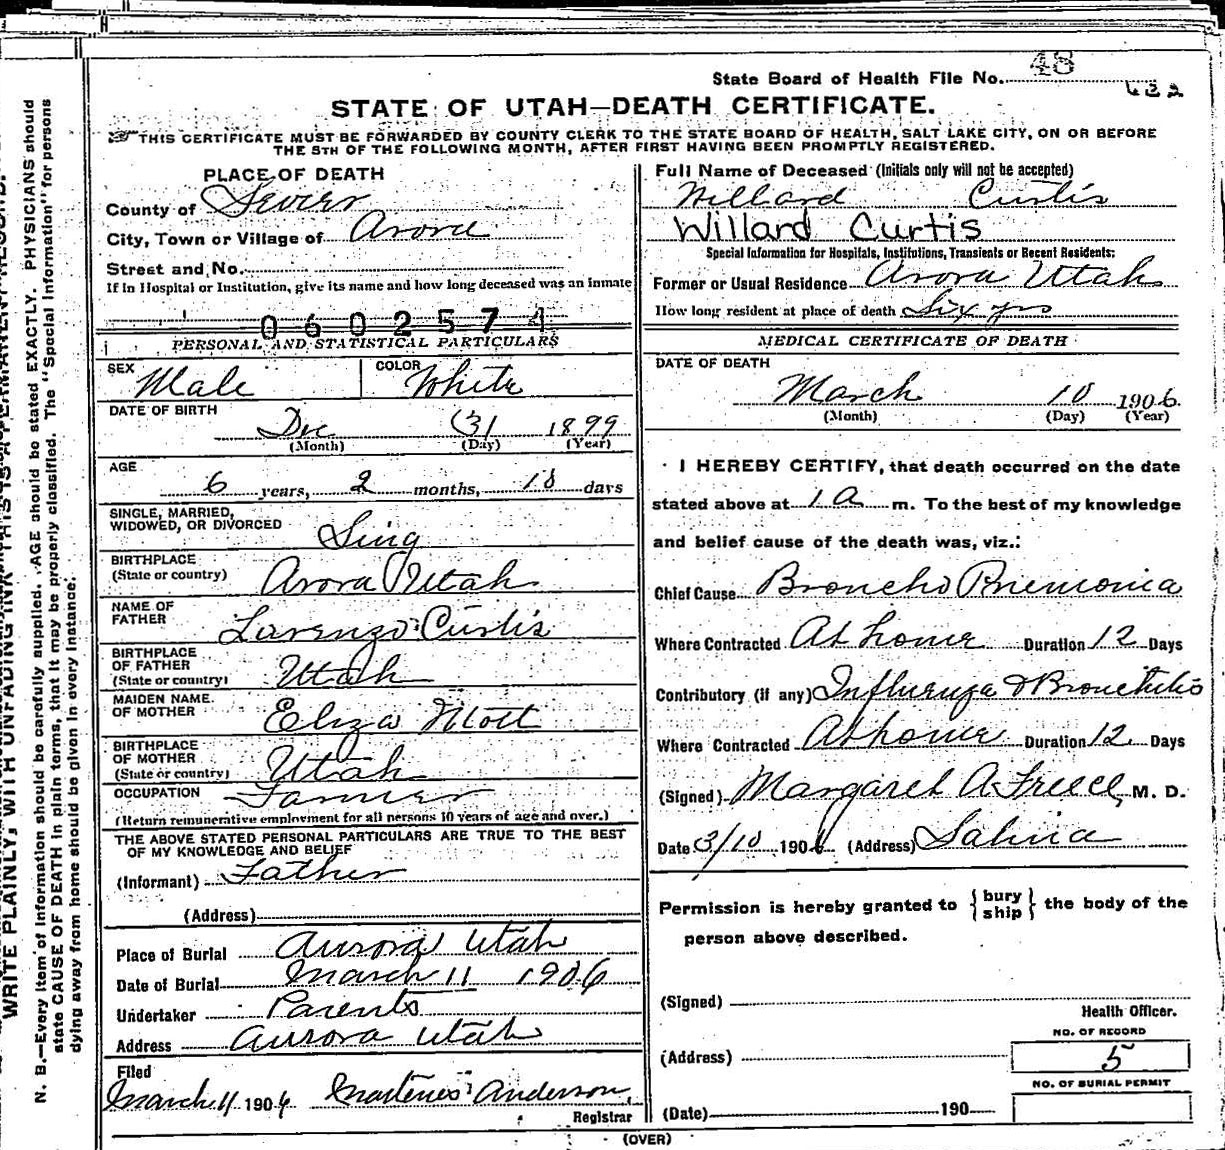 State Board of Health File No. 48
622
STATE OF UTAH—DEATH CERTIFICATE.
THIS CERTIFICATE MUST BE FORWARDED BY COUNTY CLERK TO THE STATE BOARD OF HEALTH, SALT LAKE CITY, ON OR BEFORE
THE 5TH OF THE FOLLOWING MONTH, AFTER FIRST HAVING BEEN PROMPTLY REGISTERED.
PLACE OF DEATH
County of Sevier
City, Town or Village of Arora
Street and No.
If in Hospital or Institution, give its name and how long deceased was an inmate
0602574
PERSONAL AND STATISTICAL PARTICULARS
SEX Male COLOR White
DATE OF BIRTH
Dec 31 1899
(Month) (Day) (Year)
AGE
6 years, 2 months, 10 days
SINGLE, MARRIED,
WIDOWED, OR DIVORCED Sing
BIRTHPLACE
(State or country) Arora Utah
NAME OF
FATHER Lorenzo Curtis
BIRTHPLACE
OF FATHER
(State or country) Utah
MAIDEN NAME
OF MOTHER Eliza Mott
BIRTHPLACE
OF MOTHER
(State or country) Utah
OCCUPATION Farmer
(Return remunerative employment for all persons 10 years of age and over.)
THE ABOVE STATED PERSONAL PARTICULARS ARE TRUE TO THE BEST
OF MY KNOWLEDGE AND BELIEF
(Informant) Father
(Address)
Place of Burial Aurora Utah
Date of Burial March 11 1906
Undertaker Parents
Address Aurora Utah
Filed
March 11 1906 Martenes Anderson,
Registrar
Full Name of Deceased (Initials only will not be accepted)
Willard Curtis
Willard Curtis
Special Information for Hospitals, Institutions, Transients or Recent Residents:
Former or Usual Residence Arora Utah
How long resident at place of death Six yrs
MEDICAL CERTIFICATE OF DEATH
DATE OF DEATH
March 10 1906
(Month) (Day) (Year)
I HEREBY CERTIFY, that death occurred on the date
stated above at 1 a m. To the best of my knowledge
and belief cause of the death was, viz.:
Chief Cause Broncho Pnemonia
Where Contracted At home Duration 12 Days
Contributory (if any) Influenza & Bronchitis
Where Contracted At home Duration 12 Days
(Signed) Margaret A Freece, M. D.
Date 3/10 1906 (Address) Salina
Permission is hereby granted to {bury
ship} the body of the
person above described.
(Signed)
Health Officer.
NO. OF RECORD
(Address) 5
NO. OF BURIAL PERMIT
(Date) 190
(OVER)
N. B.—Every item of information should be carefully supplied. AGE should be stated EXACTLY. PHYSICIANS should
state CAUSE OF DEATH in plain terms, that it may be properly classified. The "Special Information" for persons
dying away from home should be given in every instance.
WRITE PLAINLY, WITH UNFADING INK